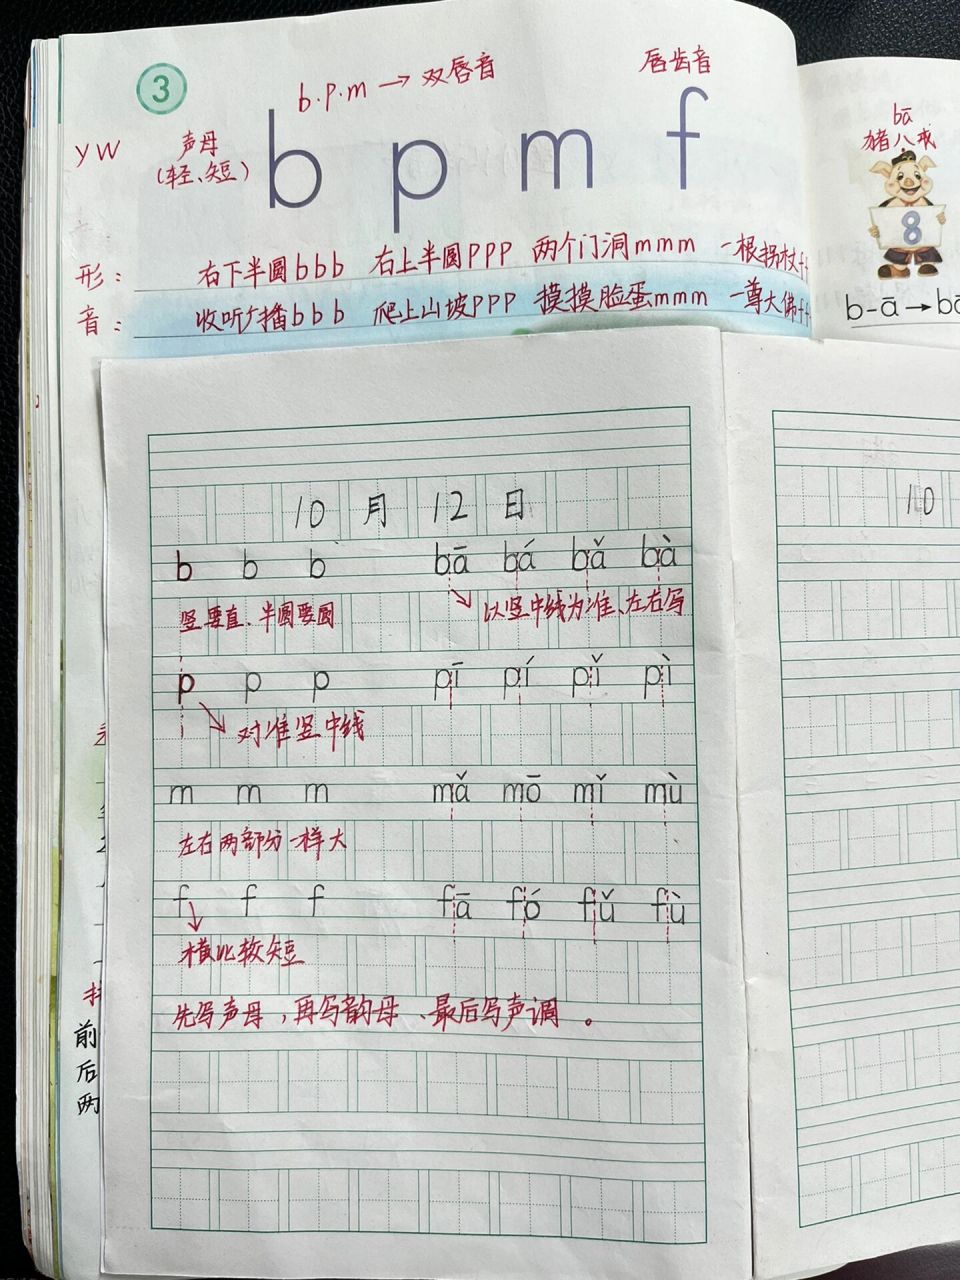 3
b.p.m → 双唇音
唇齿音
yw
声母
(轻、短)
b p m f
形： 右下半圆bbb 右上半圆ppp 两个门洞mmm 一根拐杖ff
音： 收听广播bbb 爬上山坡ppp 摸摸脸蛋mmm 一尊大佛ff
bā
猪八戒
8
b-ā→bā
10月12日
b b b bā bá bǎ bà
竖要直、半圆要圆
以竖中线为准、左右写
p p p pī pí pǐ pì
对准竖中线
m m m mǎ mō mǐ mù
左右两部分一样大
f f f fā fó fǔ fù
横比较短
先写声母，再写韵母、最后写声调。
10
前
后
两